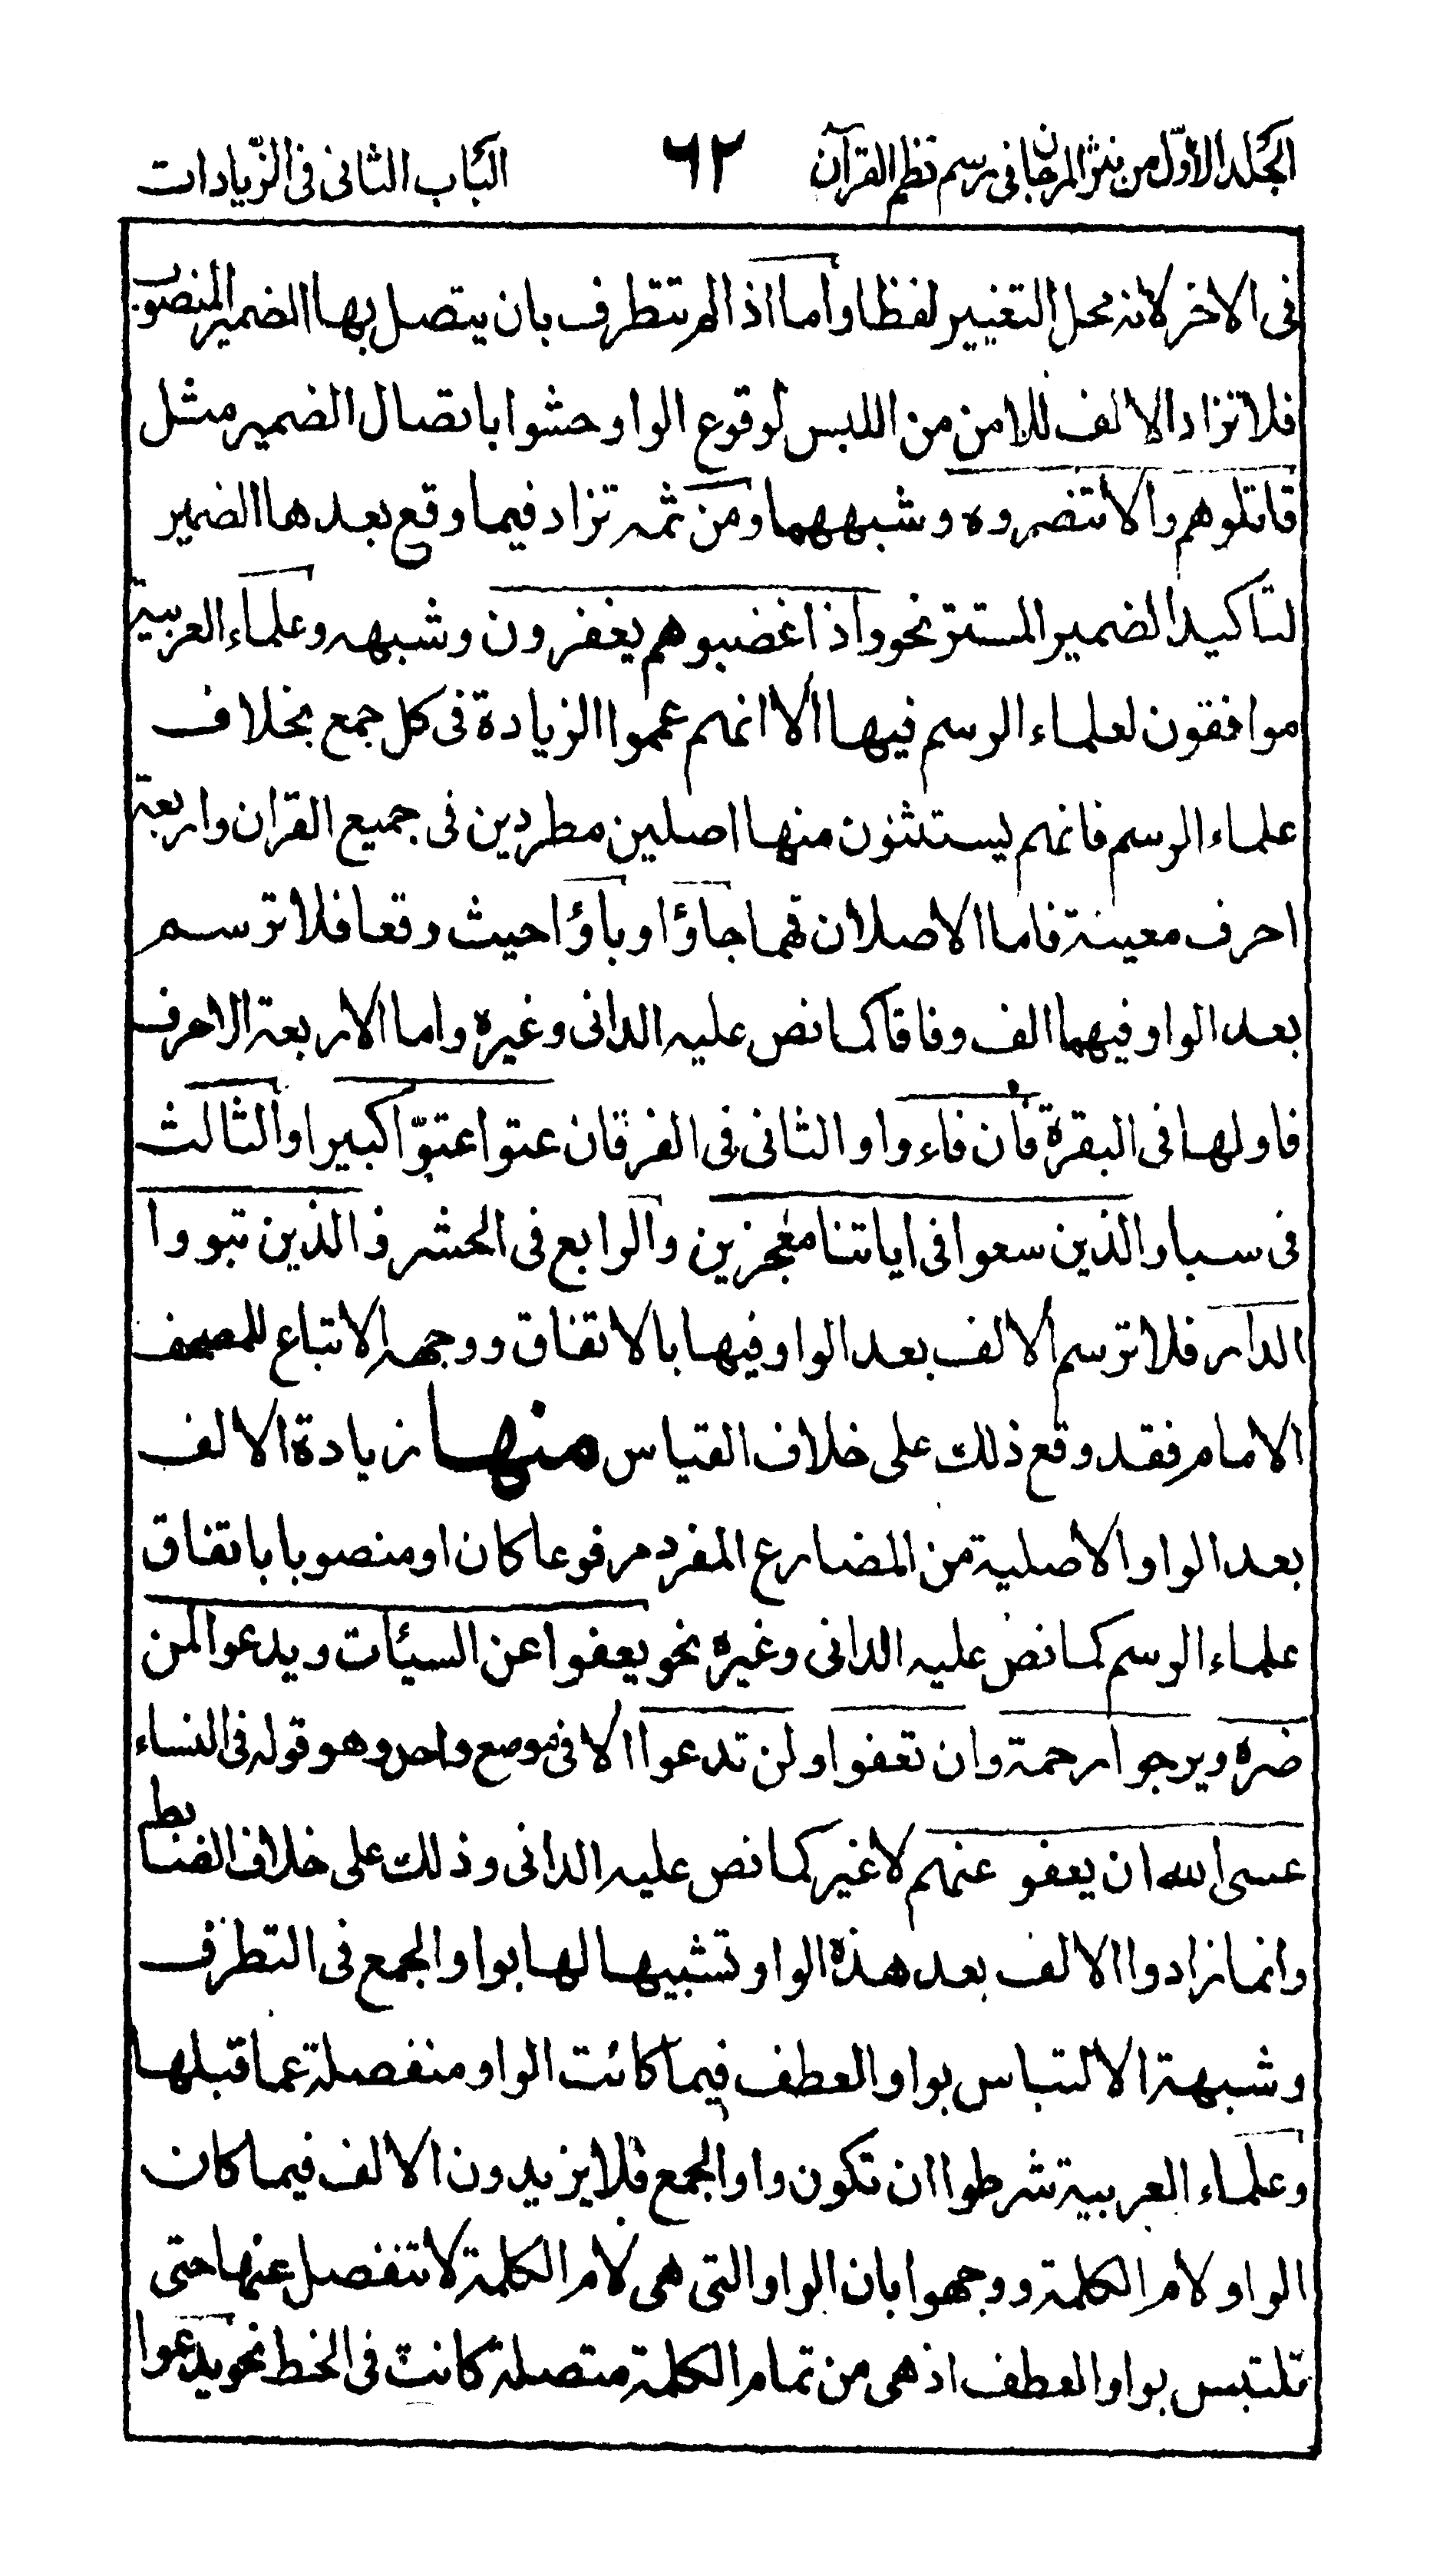 المجلد الاوّل من نثر المرجان فى رسم نظم القرآن ٦٢ الباب الثانى فى الزّيادات
فى الاخر لانه محل التغيير لفظا واما اذا لم تتطرف بان يتصل بها الضمير المنصوب
فلا تزاد الالف للامن من اللبس لوقوع الواو حشوا باتصال الضمير مثل
قاتلوهم والا تنصروه وشبههما ومن ثمه تزاد فيما وقع بعدها الضمير
لتاكيد الضمير المستتر نحو واذا غضبوا هم يغفرون وشبهه وعلماء العربية
موافقون لعلماء الرسم فيها الا انهم عمموا الزيادة فى كل جمع بخلاف
علماء الرسم فانهم يستثنون منها اصلين مطردين فى جميع القران واربعة
احرف معينة فاما الاصلان فهما جاؤا وباؤا حيث وقعا فلا ترسم
بعد الواو فيهما الف وفاقا كما نص عليه الدانى وغيره واما الاربعة الاحرف
فاولها فى البقرة فان فاءو والثانى فى الفرقان عتو اعتوّا كبيرا والثالث
فى سبا والذين سعو فى اياتنا معٰجزين والرابع فى الحشر والذين تبوو ا
الدار فلا ترسم الالف بعد الواو فيها بالاتفاق ووجهه الاتباع للمصحف
الامام فقد وقع ذلك على خلاف القياس منها زيادة الالف
بعد الواو الاصلية من المضارع المفرد مرفوعا كان او منصوبا باتفاق
علماء الرسم كما نص عليه الدانى وغيره نحو يعفوا عن السيئات ويدعوا لمن
ضره ويرجوا رحمة وان تعفوا ولن تدعوا الا فى موضع واحد وهو قوله فى النساء
عسى الله ان يعفو عنهم لا غير كما نص عليه الدانى وذلك على خلاف الضابط
وانما زادوا الالف بعد هذه الواو تشبيها لها بواو الجمع فى التطرف
وشبهة الالتباس بواو العطف فيما كانت الواو منفصلة عما قبلها
وعلماء العربية شرطوا ان تكون واو الجمع فلا يزيدون الالف فيما كان
الواو لام الكلمة ووجهوا بان الواو التى هى لام الكلمة لا تنفصل عنها حتى
تلتبس بواو العطف اذ هى من تمام الكلمة متصلة كانت فى الخط نحو يدعوا